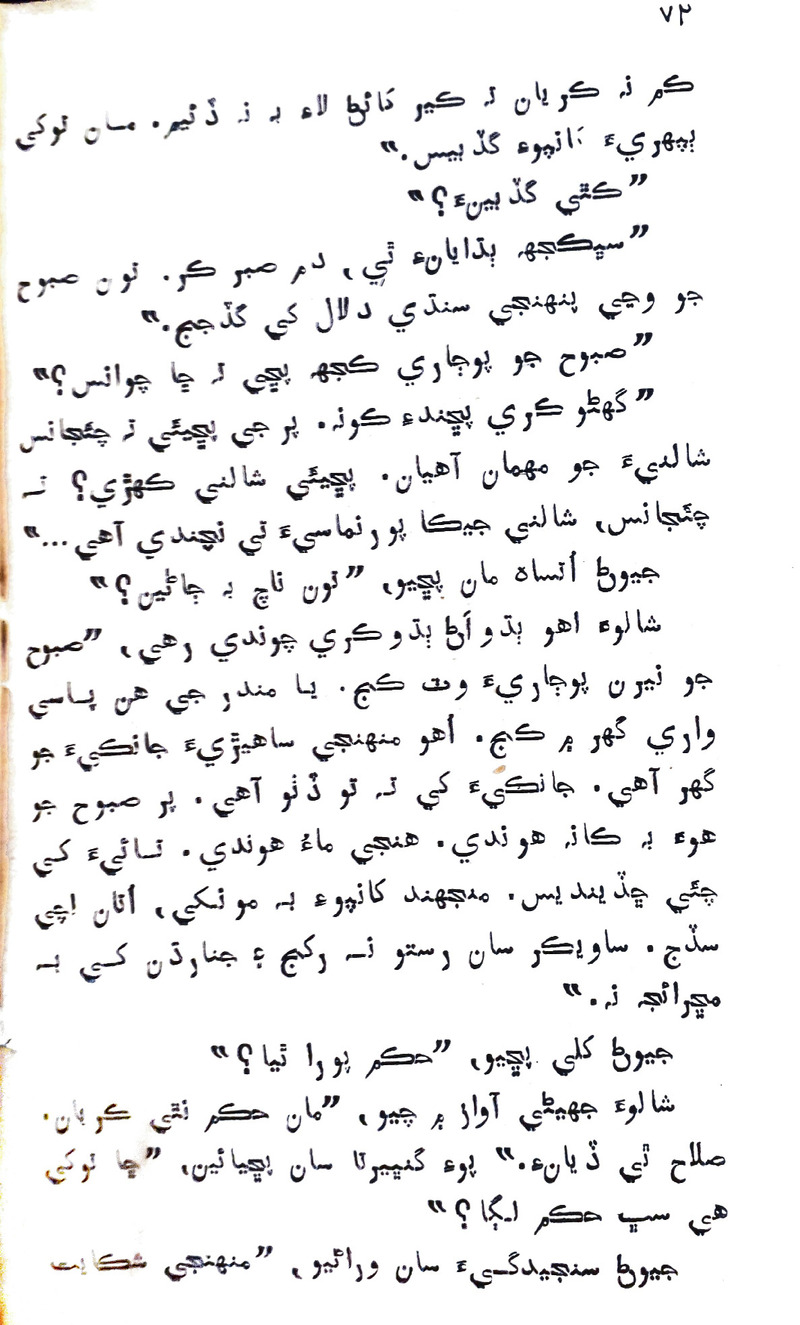 ٧٢
ڪم نہ ڪريان تہ ڪير کائڻ لاءِ بہ نہ ڏئيم. مان توکي
ٻپهريءَ کانپوءِ گڏبيس.”
”ڪٿي گڏبينءَ؟“
”سڀڪجهہ ٻڌايانءِ ٿي، دم صبر ڪر. تون صبوح
جو وڃي پنهنجي سنڌي دلال کي گڏجج.“
”صبوح جو پوڄاري ڪجهہ پڇي تہ ڇا چوانس؟“
”گهڻو ڪري پڇندءِ ڪونہ. پر جي پڇيئي تہ چئجانس
شالنيءَ جو مهمان آهيان. پڇيئي شالني ڪهڙي؟ تہ
چئجانس، شالني جيڪا پورنماسيءَ تي نچندي آهي...“
جيوڻ اُتساهہ مان پڇيو، ”تون ناچ بہ ڄاڻين؟“
شالوءَ اهو ٻڌو اَڻ ٻڌو ڪري چوندي رهي، ”صبوح
جو نيرن پوڄاريءَ وٽ ڪج. يا مندر جي هن پاسي
واري گهر ۾ ڪج. اُهو منهنجي ساهيڙيءَ جانڪيءَ جو
گهر آهي. جانڪيءَ کي تہ تو ڏٺو آهي. پر صبوح جو
هوءَ بہ ڪانہ هوندي. هنجي ماءُ هوندي. تائيءَ کي
چئي ڇڏينديس. منجهند کانپوءِ بہ مونکي، اُتان اچي
سڏج. ساويڪر سان رستو نہ رکج ۽ جنارڌن کي بہ
مڇرائجہ نہ.“
جيوڻ کلي پڇيو، ”حڪم پورا ٿيا؟“
شالوءَ جهيڻي آواز ۾ چيو، ”مان حڪم نٿي ڪريان.
صلاح ٿي ڏيانءِ.“ پوءِ گنڀيرتا سان پڇيائين، ”ڇا توکي
هي سڀ حڪم لڳا؟“
جيوڻ سنجيدگيءَ سان ورائيو، ”منهنجي شڪايت